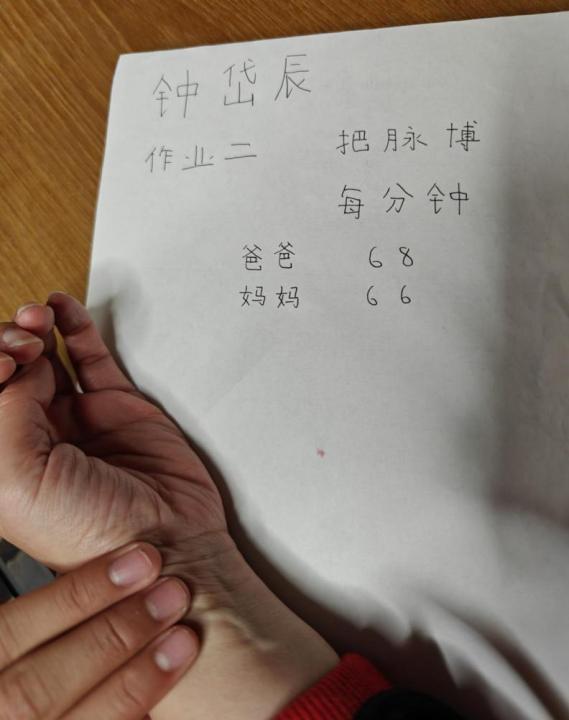 钟岱辰
作业二 把脉博
每分钟
爸爸 68
妈妈 66